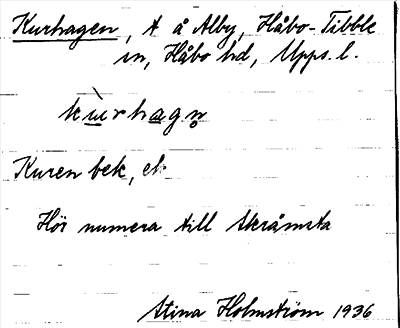 Kurhagen, t å Alby, Håbo-Tibble
sn, Håbo hd, Upps. l.
kùrhagn̥
Kuren bek, et
Hör numera till Skråmsta
Stina Holmström 1936